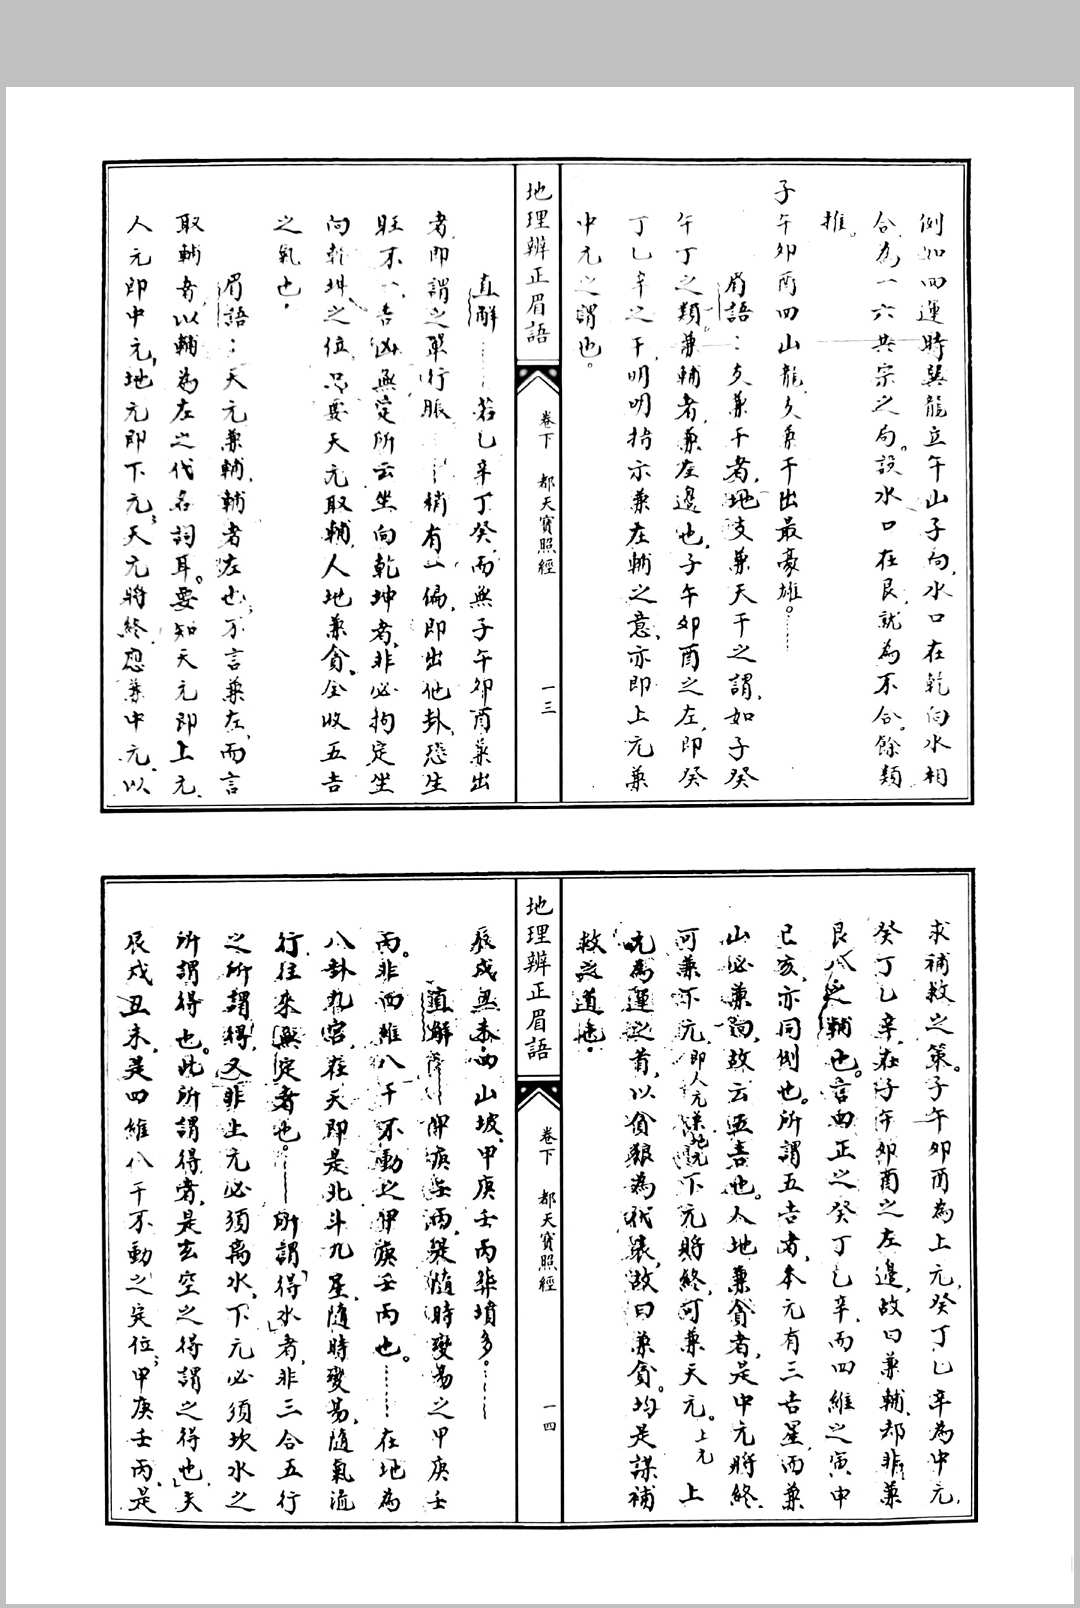 例如四運時巽龍立午山子向，水口在乾向水相
合，為一六共宗之局。設水口在艮，就為不合。餘類
推。
子午卯酉四山龍，支兼干出最豪雄。……
眉語：支兼干者，地支兼天干之謂，如子癸
午丁之類。兼輔者，兼左邊也，子午卯酉之左，即癸
丁乙辛之干，明明指示兼左輔之意，亦即上元兼
中元之謂也。
地理辨正眉語
卷下 都天寶照經
一三
直解……若乙辛丁癸，而無子午卯酉兼出
者，即謂之單行脈……稍有一偏，即出他卦，恐生
旺不一，吉凶無定。所云坐向乾坤者，非必拘定坐
向乾坤之位，只要天元取輔，人地兼貪，全收五吉
之氣也。
眉語：天元兼輔，輔者左也，不言兼左，而言
取輔者，以輔為左之代名詞耳。要知天元即上元，
人元即中元，地元即下元，天元將終，應兼中元，以
求補救之策。子午卯酉為上元，癸丁乙辛為中元，
癸丁乙辛，在子午卯酉之左邊，故曰兼輔，却非兼
艮八之輔也。言四正之癸丁乙辛，而四維之寅申
巳亥，亦同例也。所謂五吉者，本元有三吉星，而兼
山必兼向，故云五吉也。人地兼貪者，是中元將終，
可兼下元，即人元兼地元下元將終，可兼天元。上元 上
元為運之首，以貪狼為代表，故曰兼貪。均是謀補
救之道也。
地理辨正眉語
卷下 都天寶照經
一四
辰戌丑未四山坡，甲庚壬丙葬墳多。……
直解……甲庚壬丙，是隨時變易之甲庚壬
丙。非四維八干不動之甲庚壬丙也。……在地為
八卦九宮，在天即是北斗九星，隨時變易，隨氣流
行，往來無定者也。……所謂「得水」者，非三合五行
之所謂得，又非上元必須离水，下元必須坎水之
所謂得也。此所謂得者，是玄空之得謂之得也」天
辰戌丑未，是四維八干不動之定位，甲庚壬丙，是